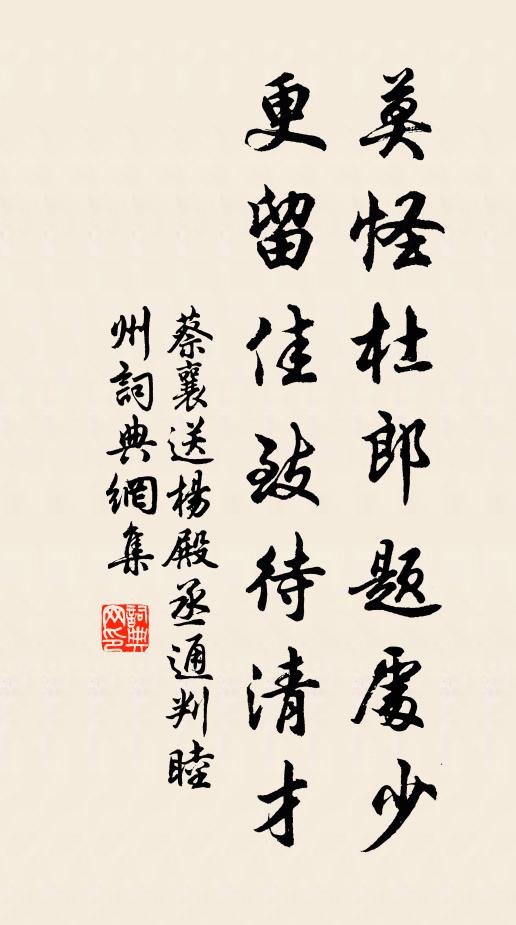 莫怪杜郎題處少
更留佳致待清才
蔡襄送楊殿丞通判睦
州詞典網集
詞典網印